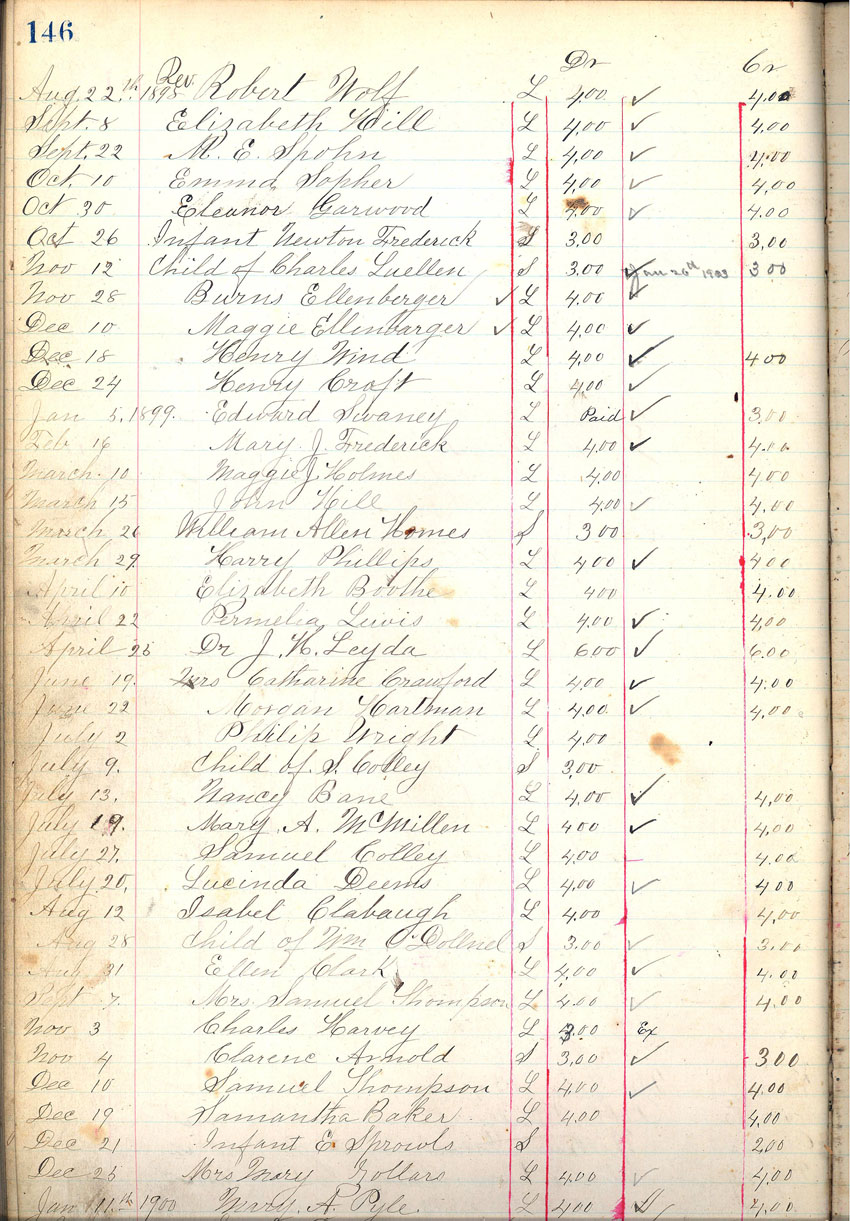 146
Dr Cr
Aug. 22.th 1898 Rev. Robert Wolf L 4,00 ✓ 4,00
Sept. 8 Elizabeth Hill L 4,00 ✓ 4,00
Sept. 22 M. E. Spohn L 4,00 ✓ 4,00
Oct. 10 Emma Sopher L 4,00 ✓ 4,00
Oct 30 Eleanor Garwood L 4,00 ✓ 4.00
Oct 26 Infant Newton Frederick S 3.00 3,00
Nov 12 Child of Charles Luellen S 3.00 ✓ Jan 26th 1903 3 00
Nov 28 Burns Ellenberger ✓ L 4,00 ✓
Dec 10 Maggie Ellenbarger ✓ L 4,00 ✓
Dec 18 Henry Wind L 4,00 ✓ 400
Dec 24 Henry Croft L 4,00 ✓
Jan 5, 1899. Edward Swaney L Paid ✓ 3,00
Feb 16 Mary J. Frederick L 4,00 ✓ 4.00
March. 10 Maggie J. Holmes L 4,00 400
March 15 John Hill L 4,00 ✓ 4,00
March 26 William Allen Homes S 300 3,00
March 29 Harry Phillips L 400 ✓ 400
April 10 Elizabeth Boothe L 400 4.00
April 22 Permelia Lewis L 4,00 ✓ 4,00
April 25 Dr J. H. Leyda L 6.00 ✓ 6.00
June 19. Mrs Catharine Crawford L 4,00 ✓ 4.00
June 22 Morgan Hartman L 4,00 ✓ 4,00
July 2 Philip Wright L 4,00
July 9. Child of S. Colley S 3,00
July 13. Nancy Bane L 4,00 ✓ 4,00
July 19. Mary. A. McMillen L 400 ✓ 4,00
July 27, Samuel Colley L 4,00 4.00
July 20, Lucinda Deems L 4,00 ✓ 400
Aug 12 Isabel Clabaugh L 4,00 4,00
Aug 28 Child of Wm O'Dollnel S 3.00 ✓ 3,00
Aug. 31 Ellen Clark L 4,00 ✓ 4.00
Sept 7. Mrs. Samuel Thompson L 4.00 ✓ 4,00
Nov 3 Charles Harvey L .00 Ex
Nov 4 Clarenc Arnold S 3,00 ✓ 300
Dec 10 Samuel Thompson L 4,00 ✓ 4.00
Dec 19 Samantha Baker L 4.00 4,00
Dec 21 Infant E. Sprowls S 2.00
Dec 25 Mrs Mary Kollars L 4,00 ✓ 4,00
Jan 11.th 1900 Mary. A. Pyle. L 400 4,00